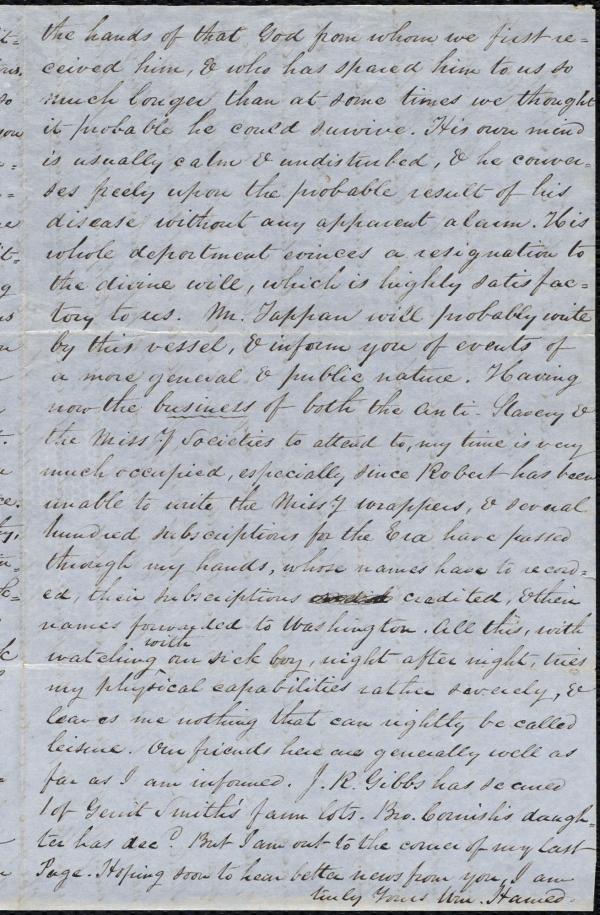 the hands of that God from whom we first re=
ceived him, & who has spared him to us so
much longer than at some times we thought
it probable he could survive. His own mind
is usually calm & undisturbed, & he conver-
ses freely upon the probable result of his
disease without any apparent alarm. His
whole deportment evinces a resignation to
the divine will, which is highly satisfac=
tory to us. Mr. Tappan will probably write
by this vessel, & inform you of events of
a more general & public nature. Having
now the business of both the Anti-Slavery &
the Miss.y Societies to attend to, my time is very
much occupied, especially since Robert has been
unable to write the Miss.y wrappers, & several
hundred subscriptions for the Era have passed
through my hands, whose names have to record=
ed, their subscriptions credited, & their
names forwarded to Washington. All this, with
watching with our sick boy, night after night, tries
my physical capabilities rather severely, &
leaves me nothing that can rightly be called
leisure. Our friends here are generally well as
far as I am informed. J. R. Gibbs has secured
1 of Gerrit Smith's farm lots. Bro. Cornish's daugh=
ter has dec.d But I am out to the corner of my last
Page. Hoping soon to hear better news from you, I am
truly Yours Wm. Harned.